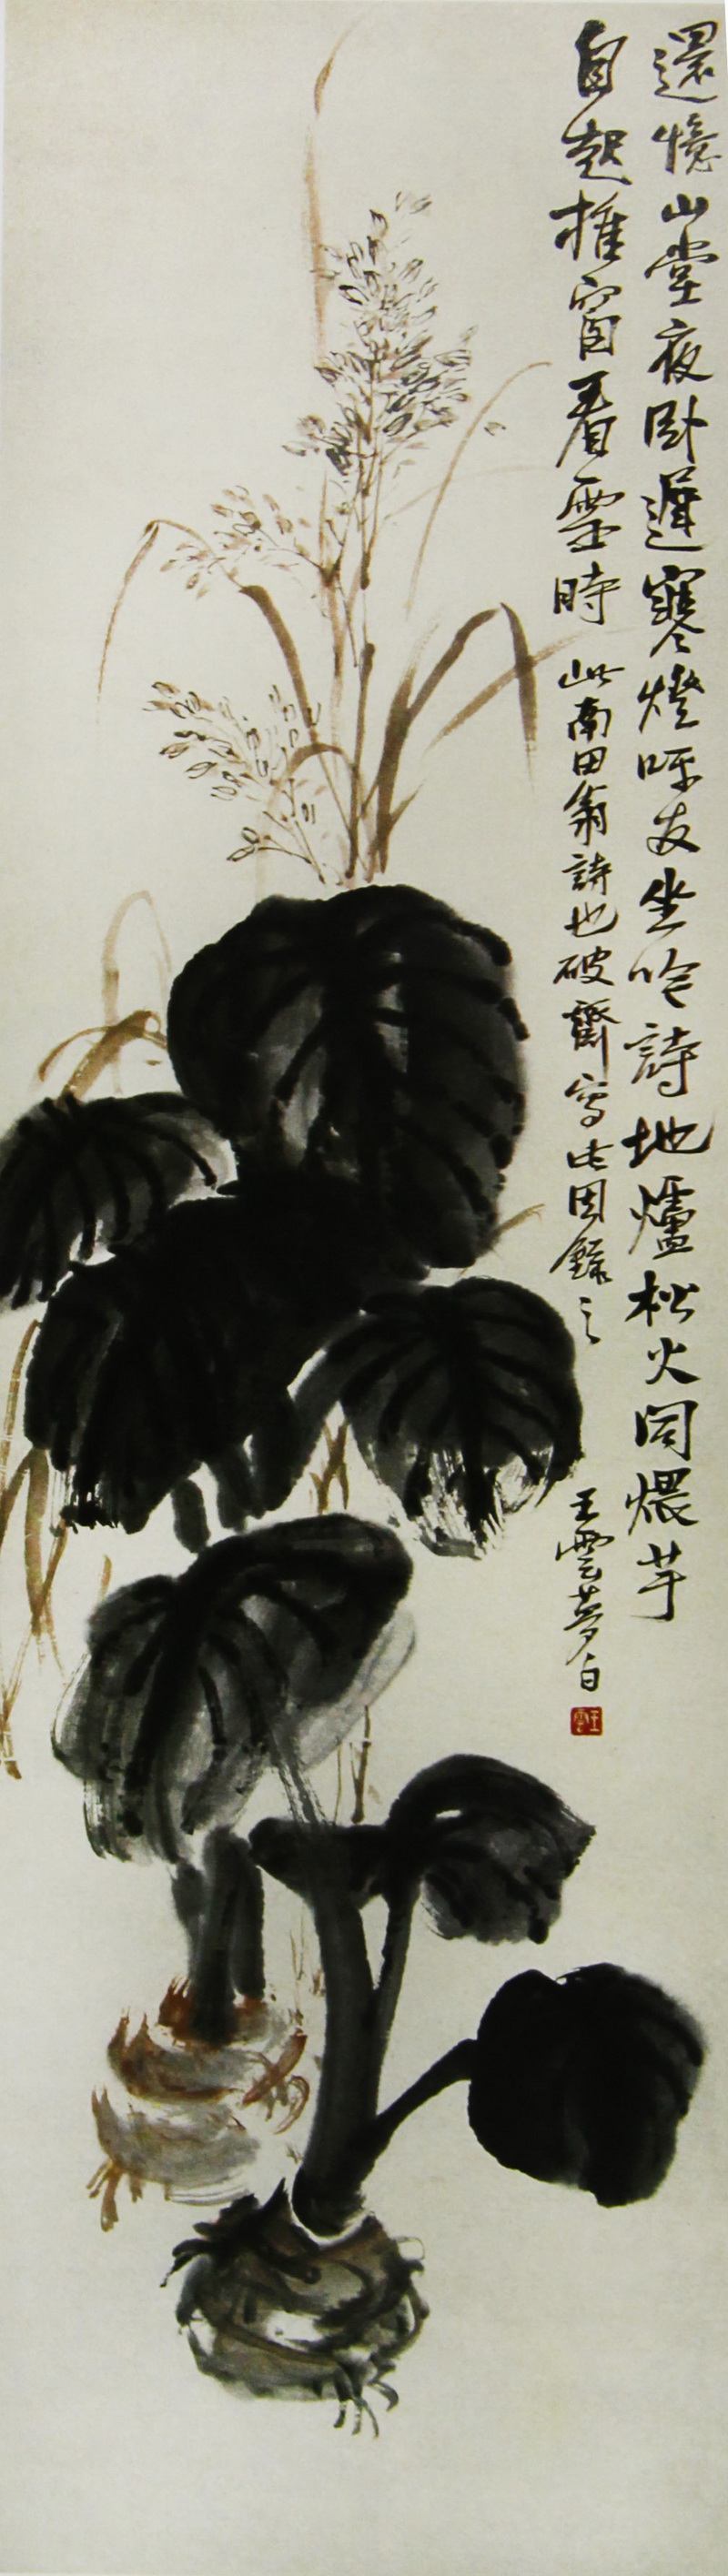 還憶山堂夜卧遲寒燈呼友坐吟詩地爐松火同煨芋
自起推窗看雪時 此南田翁詩也破齋寫生因錄之 王雲夢白
王雲